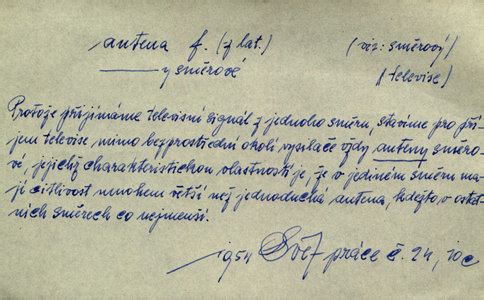 antena f. (z lat.) (viz: směrový)
—— y směrové (televise)
Protože přijímáme televisní signál z jednoho směru, stavíme pro pří-
jem televise mimo bezprostřední okolí vysílače vždy antény směro-
vé, jejichž charakteristickou vlastností je, že v jediném směru ma-
jí citlivost mnohem větší než jednoduchá antena, kdežto v ostat-
ních směrech co nejmenší.
1954 Svět práce č. 24, 10c